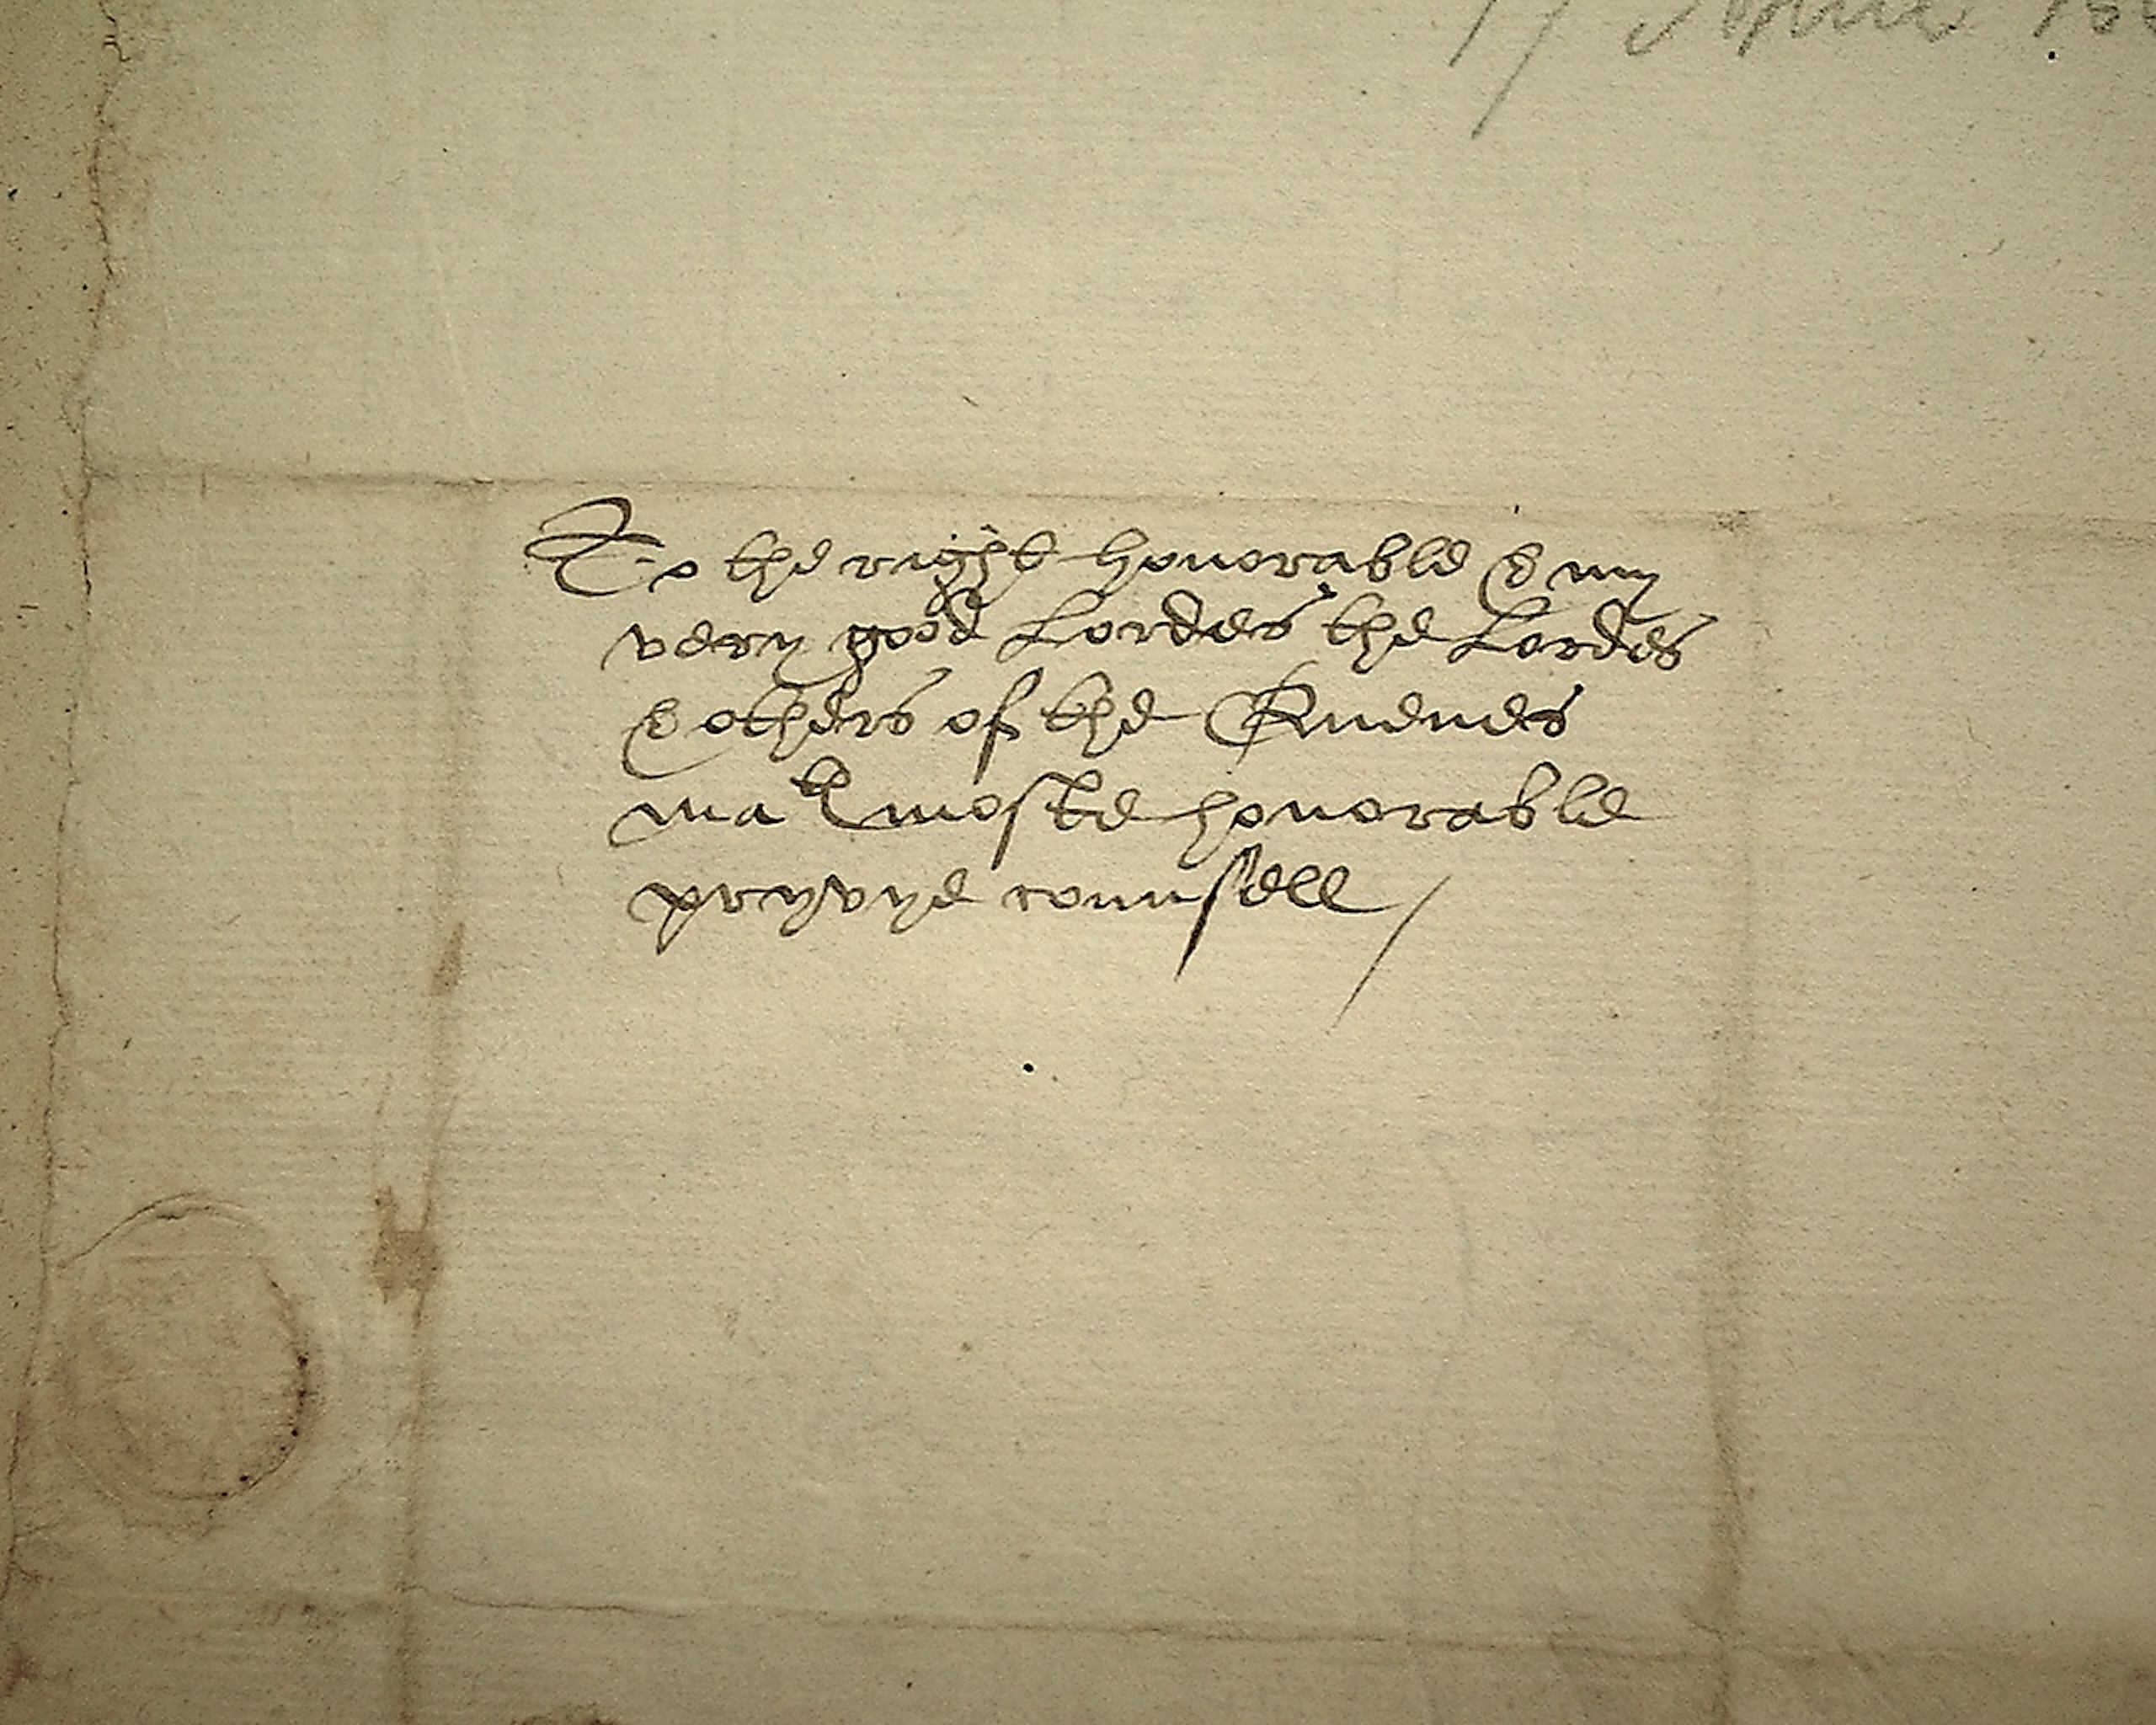 17 Aprill
To the right honorable & my
very good Lordes the Lordes
& others of the Quenes
matⁱᵉ moste honorable
pryvye counsell /